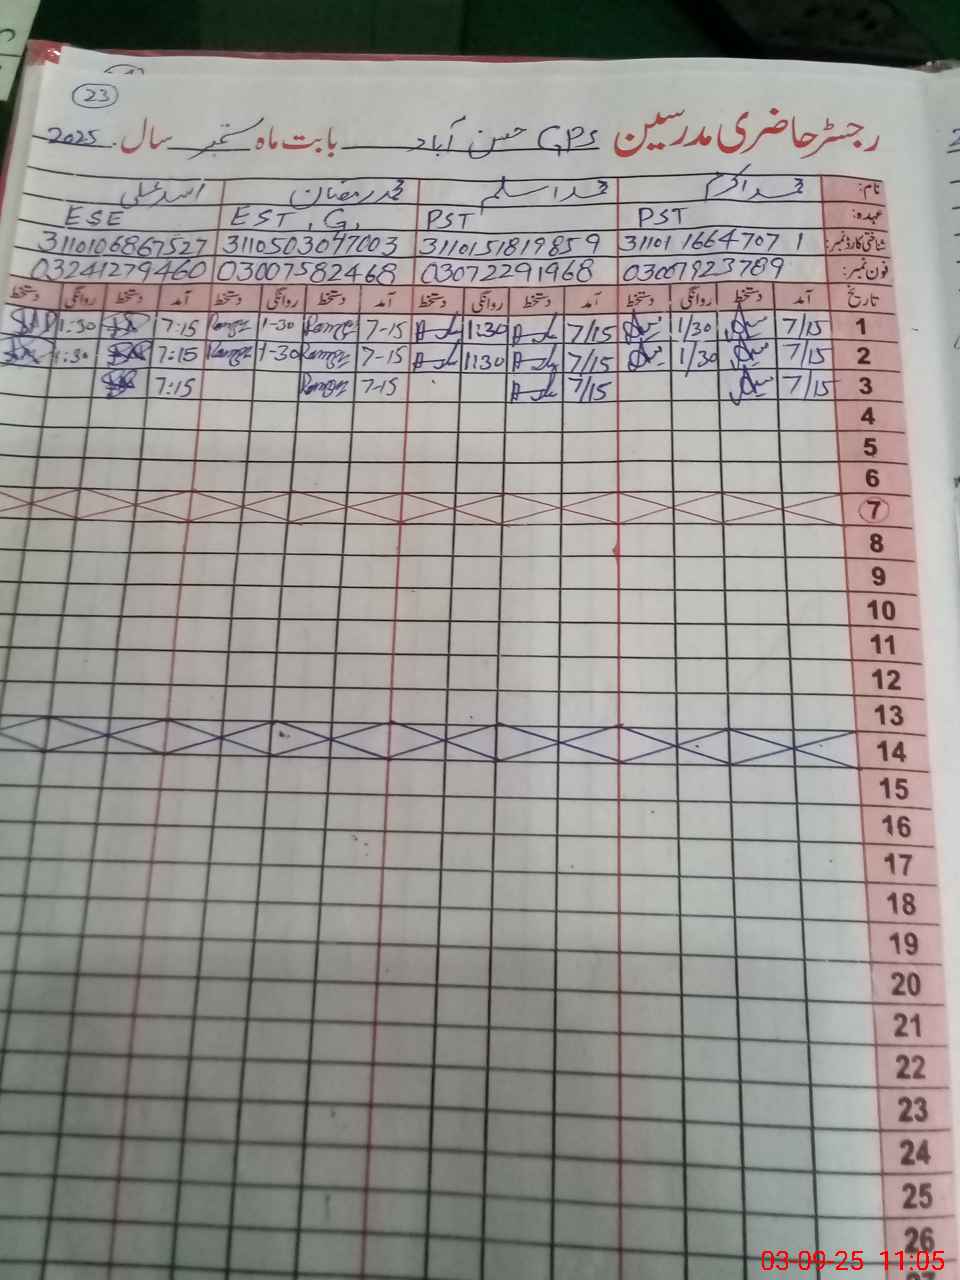 23
رجسٹر حاضری مدرسین GPS حسن آباد بابت ماہ ستمبر سال 2025
نام: محمد اکرم محمد اسلم محمد رمضان اسد علی
عہدہ: PST PST EST, G, ESE
شناختی کارڈ نمبر: 3110116647071 3110151819859 3110503047003 3110106867527
فون نمبر: 03007923789 03072291968 03007582468 03241279460
تاریخ آمد دستخط روانگی دستخط آمد دستخط روانگی دستخط آمد دستخط روانگی دستخط آمد دستخط روانگی دستخط
1 7/15 1/30 7/15 1:30 7-15 1-30 7:15 1:30
2 7/15 1/30 7/15 1130 7-15 1-30 7:15 1:30
3 7/15 7/15 7-15 7:15
4
5
6
7
8
9
10
11
12
13
14
15
16
17
18
19
20
21
22
23
24
25
26
03-09-25 11:05